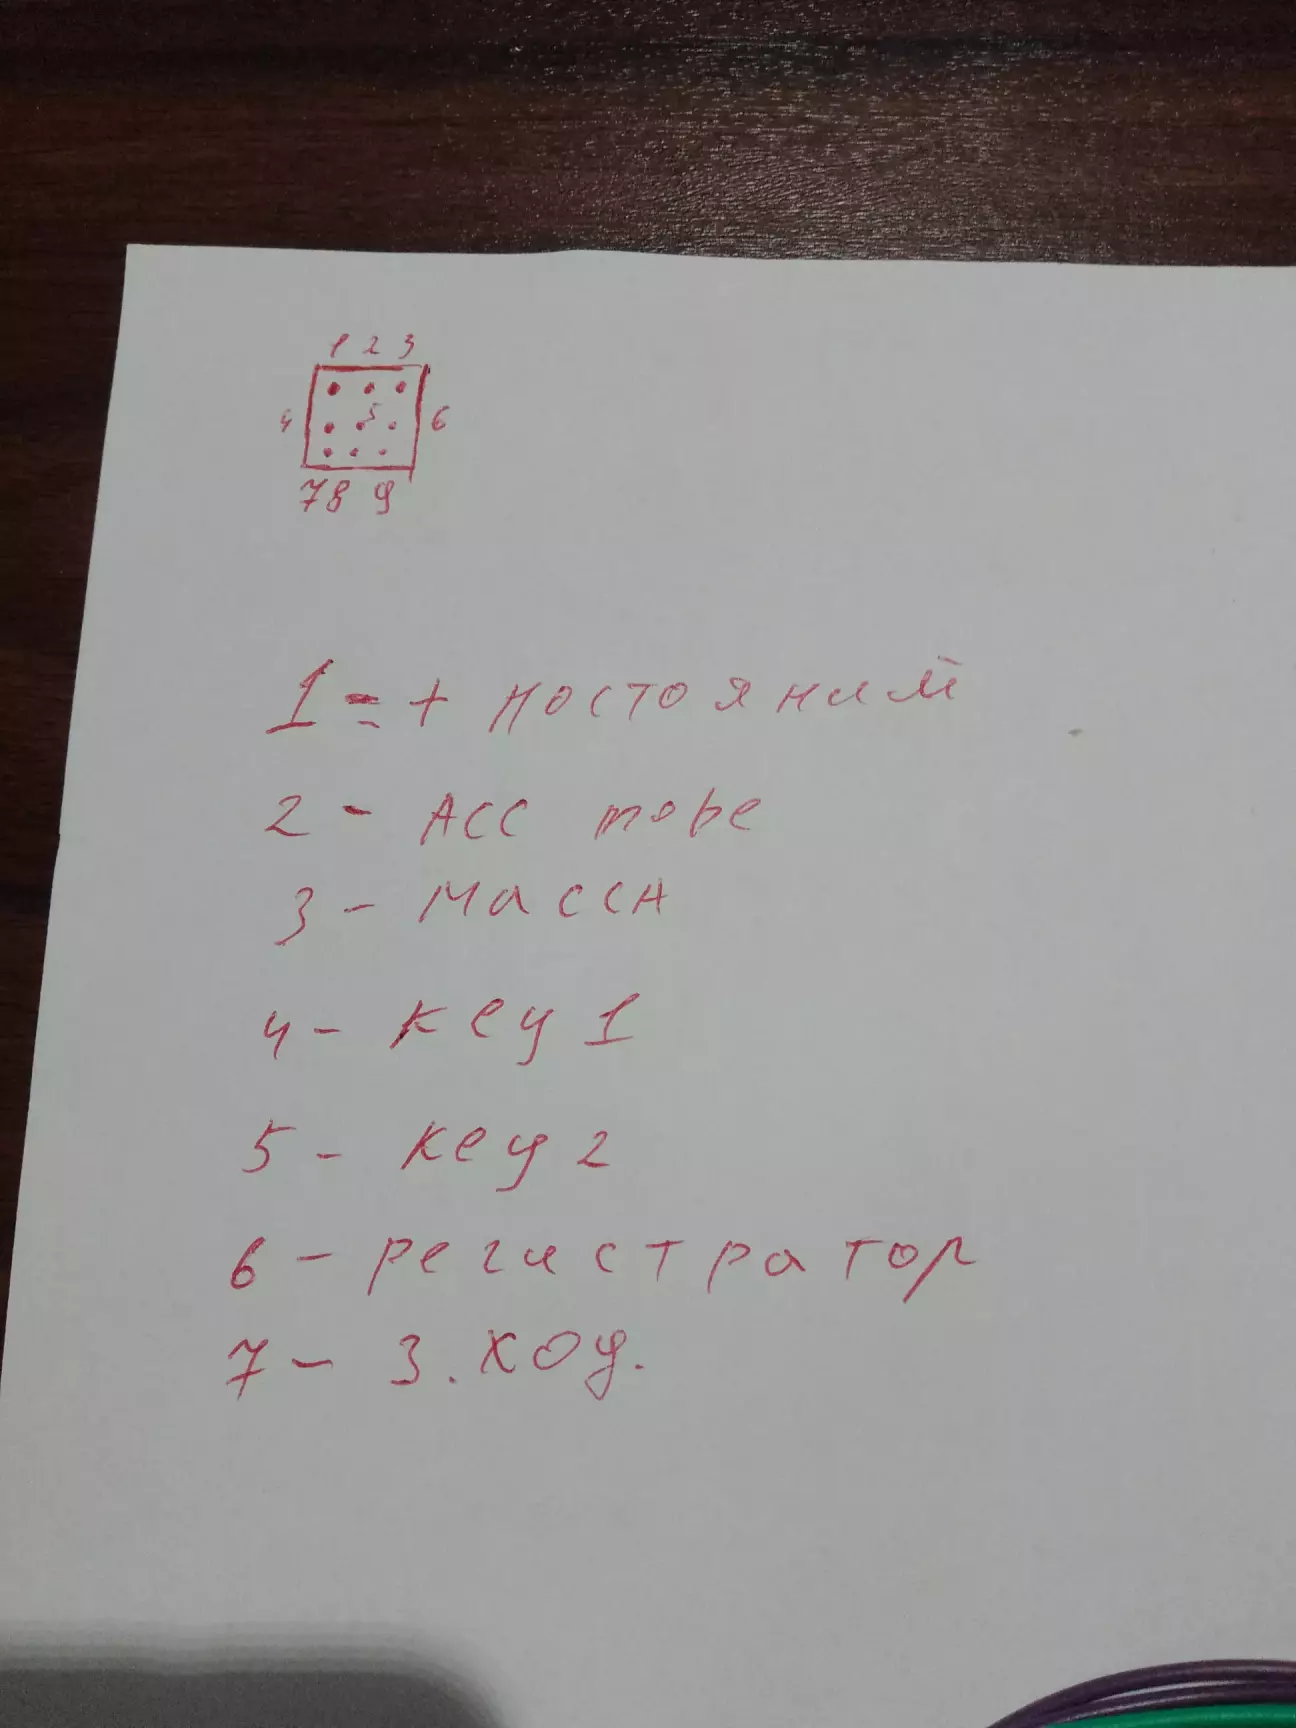 1 2 3
4 5 6
7 8 9
1 = + постояний
2 - ACC тоже
3 - МАССА
4 - Key 1
5 - Key 2
6 - регистратор
7 - З. ход.